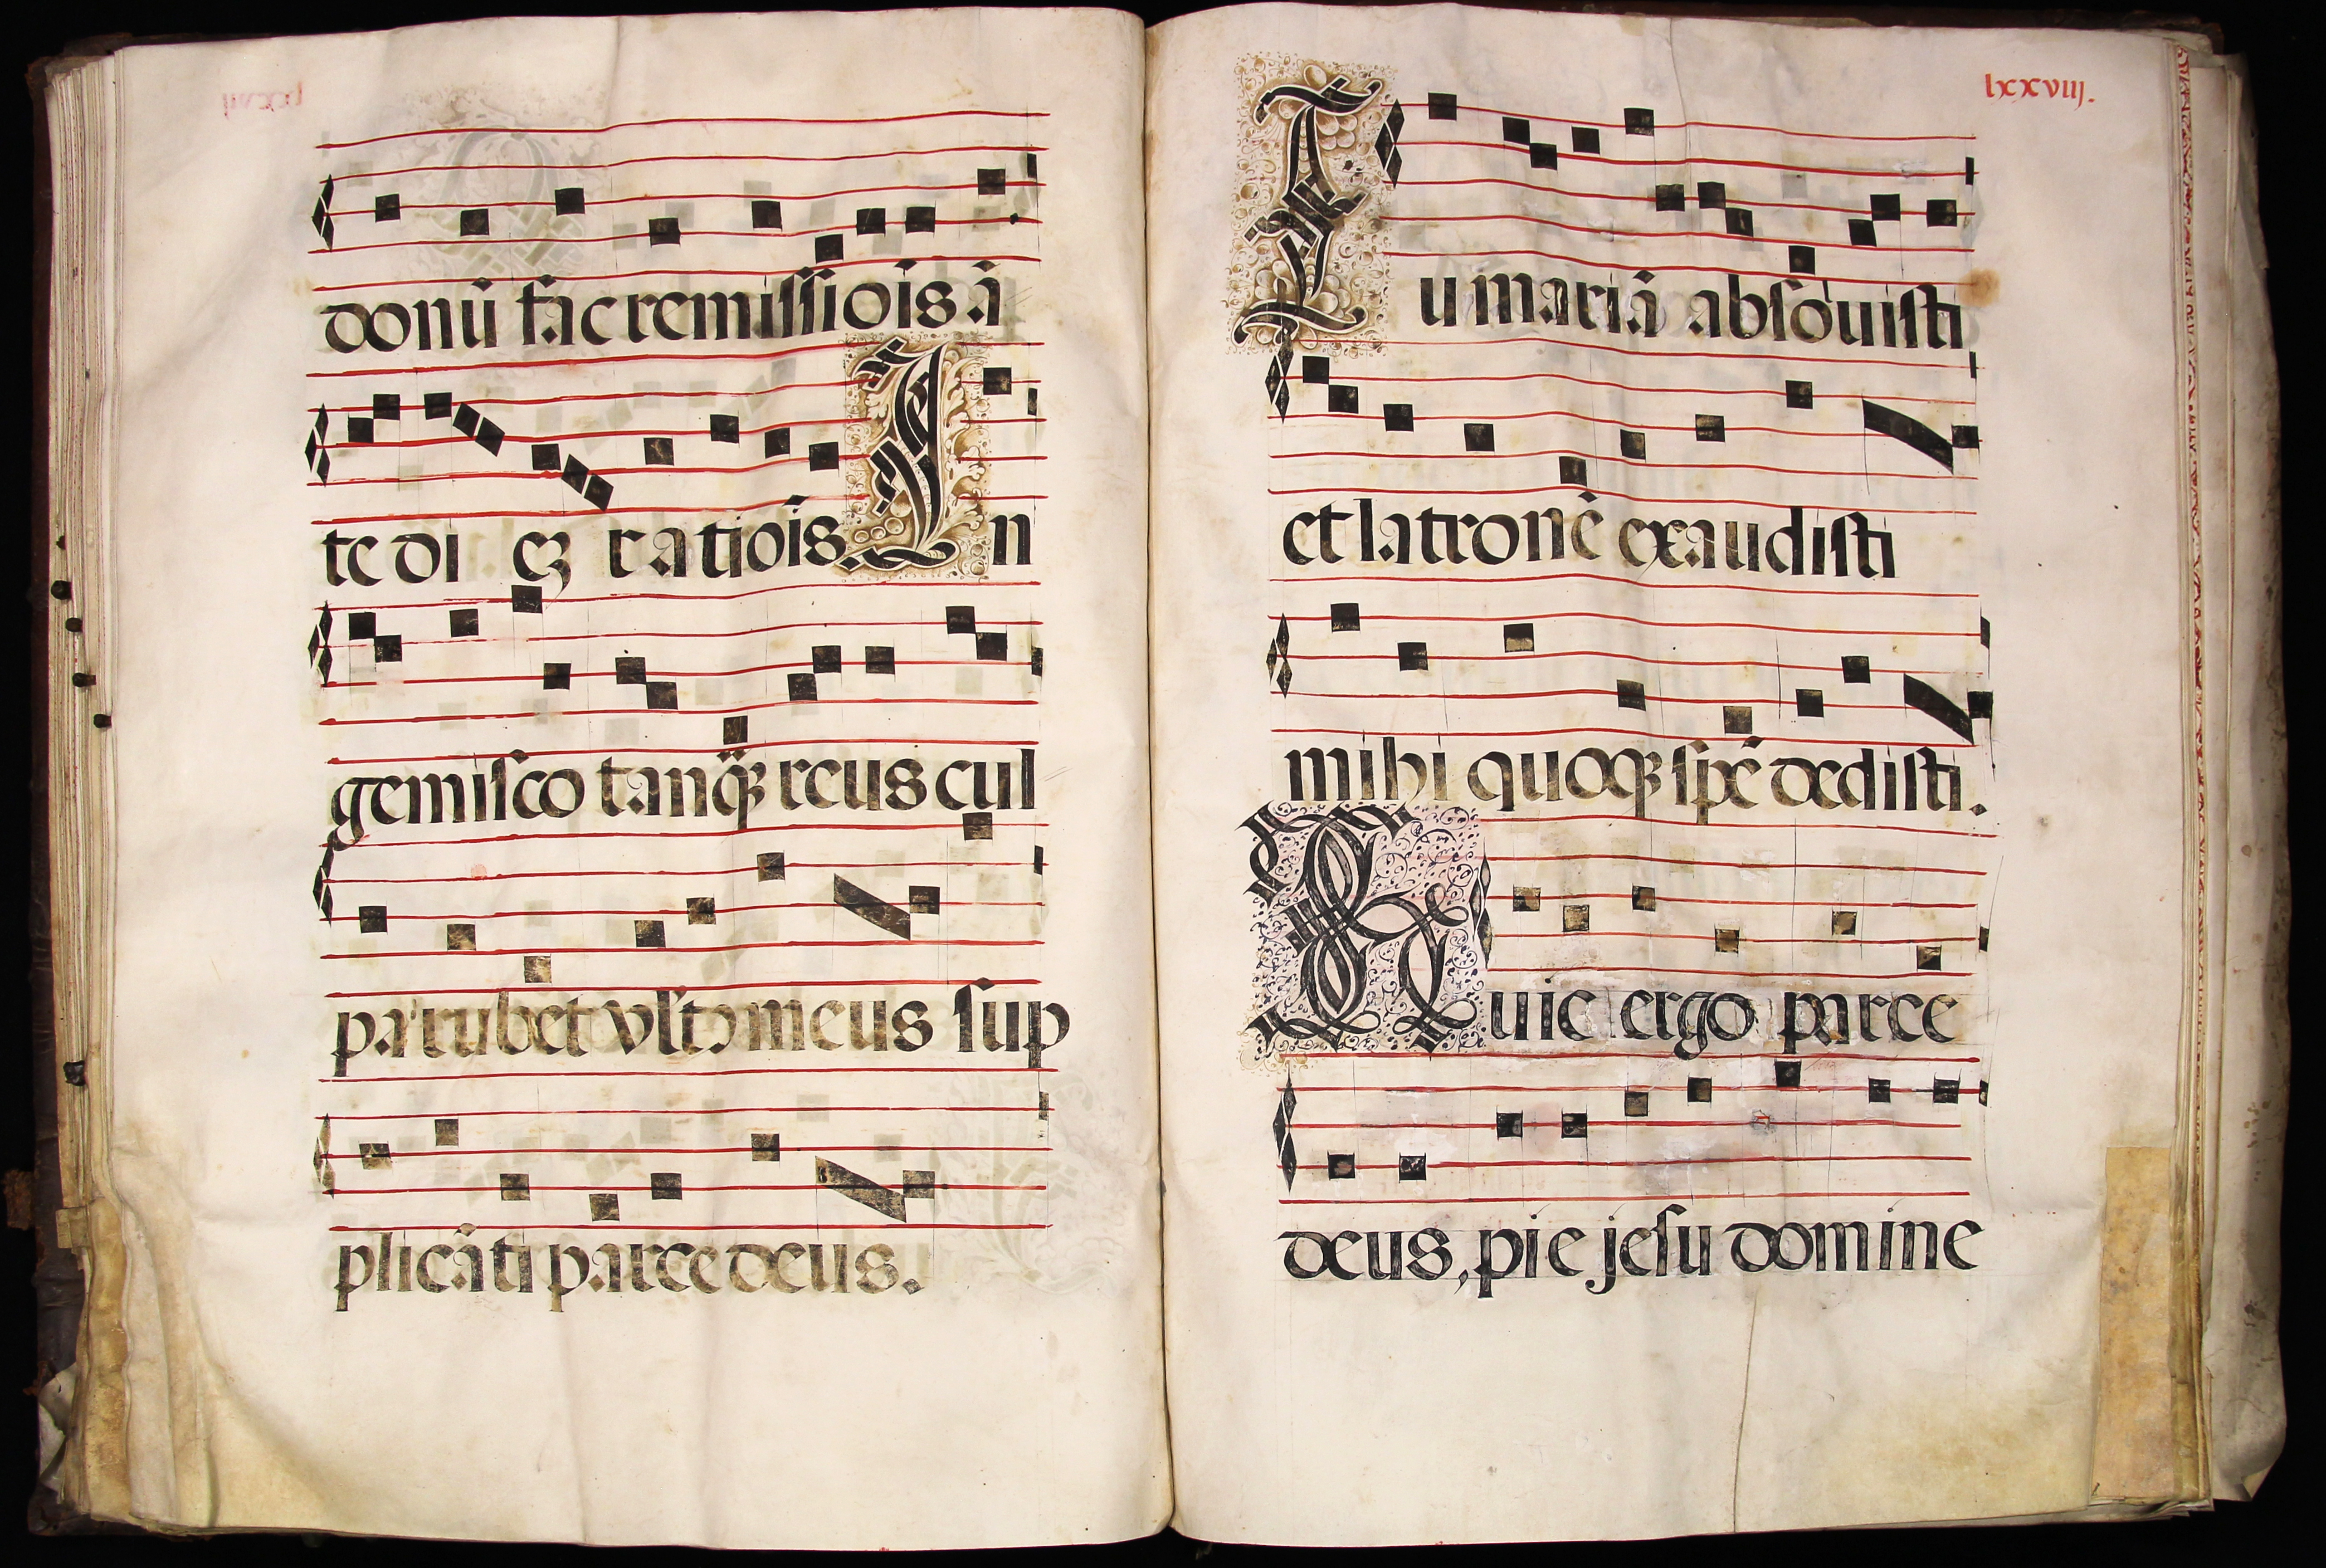 donū fac remissiōis ā
te di eȝ ratiōis. In
gemisco tanq̄ȝ reus cul
pa rubet vlt᷒ meus sup
plicāti parce deus.
lxxviij.
Tu mariā absouisti
et latronē exaudisti
mihi quoqȝ spē dedisti.
Huic ergo parce
deus, pie jesu domine